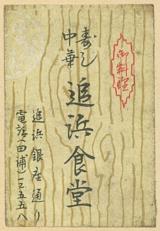 御料理
寿し
中華
追浜食堂
追浜銀座通り
電話(田浦)一二五五八